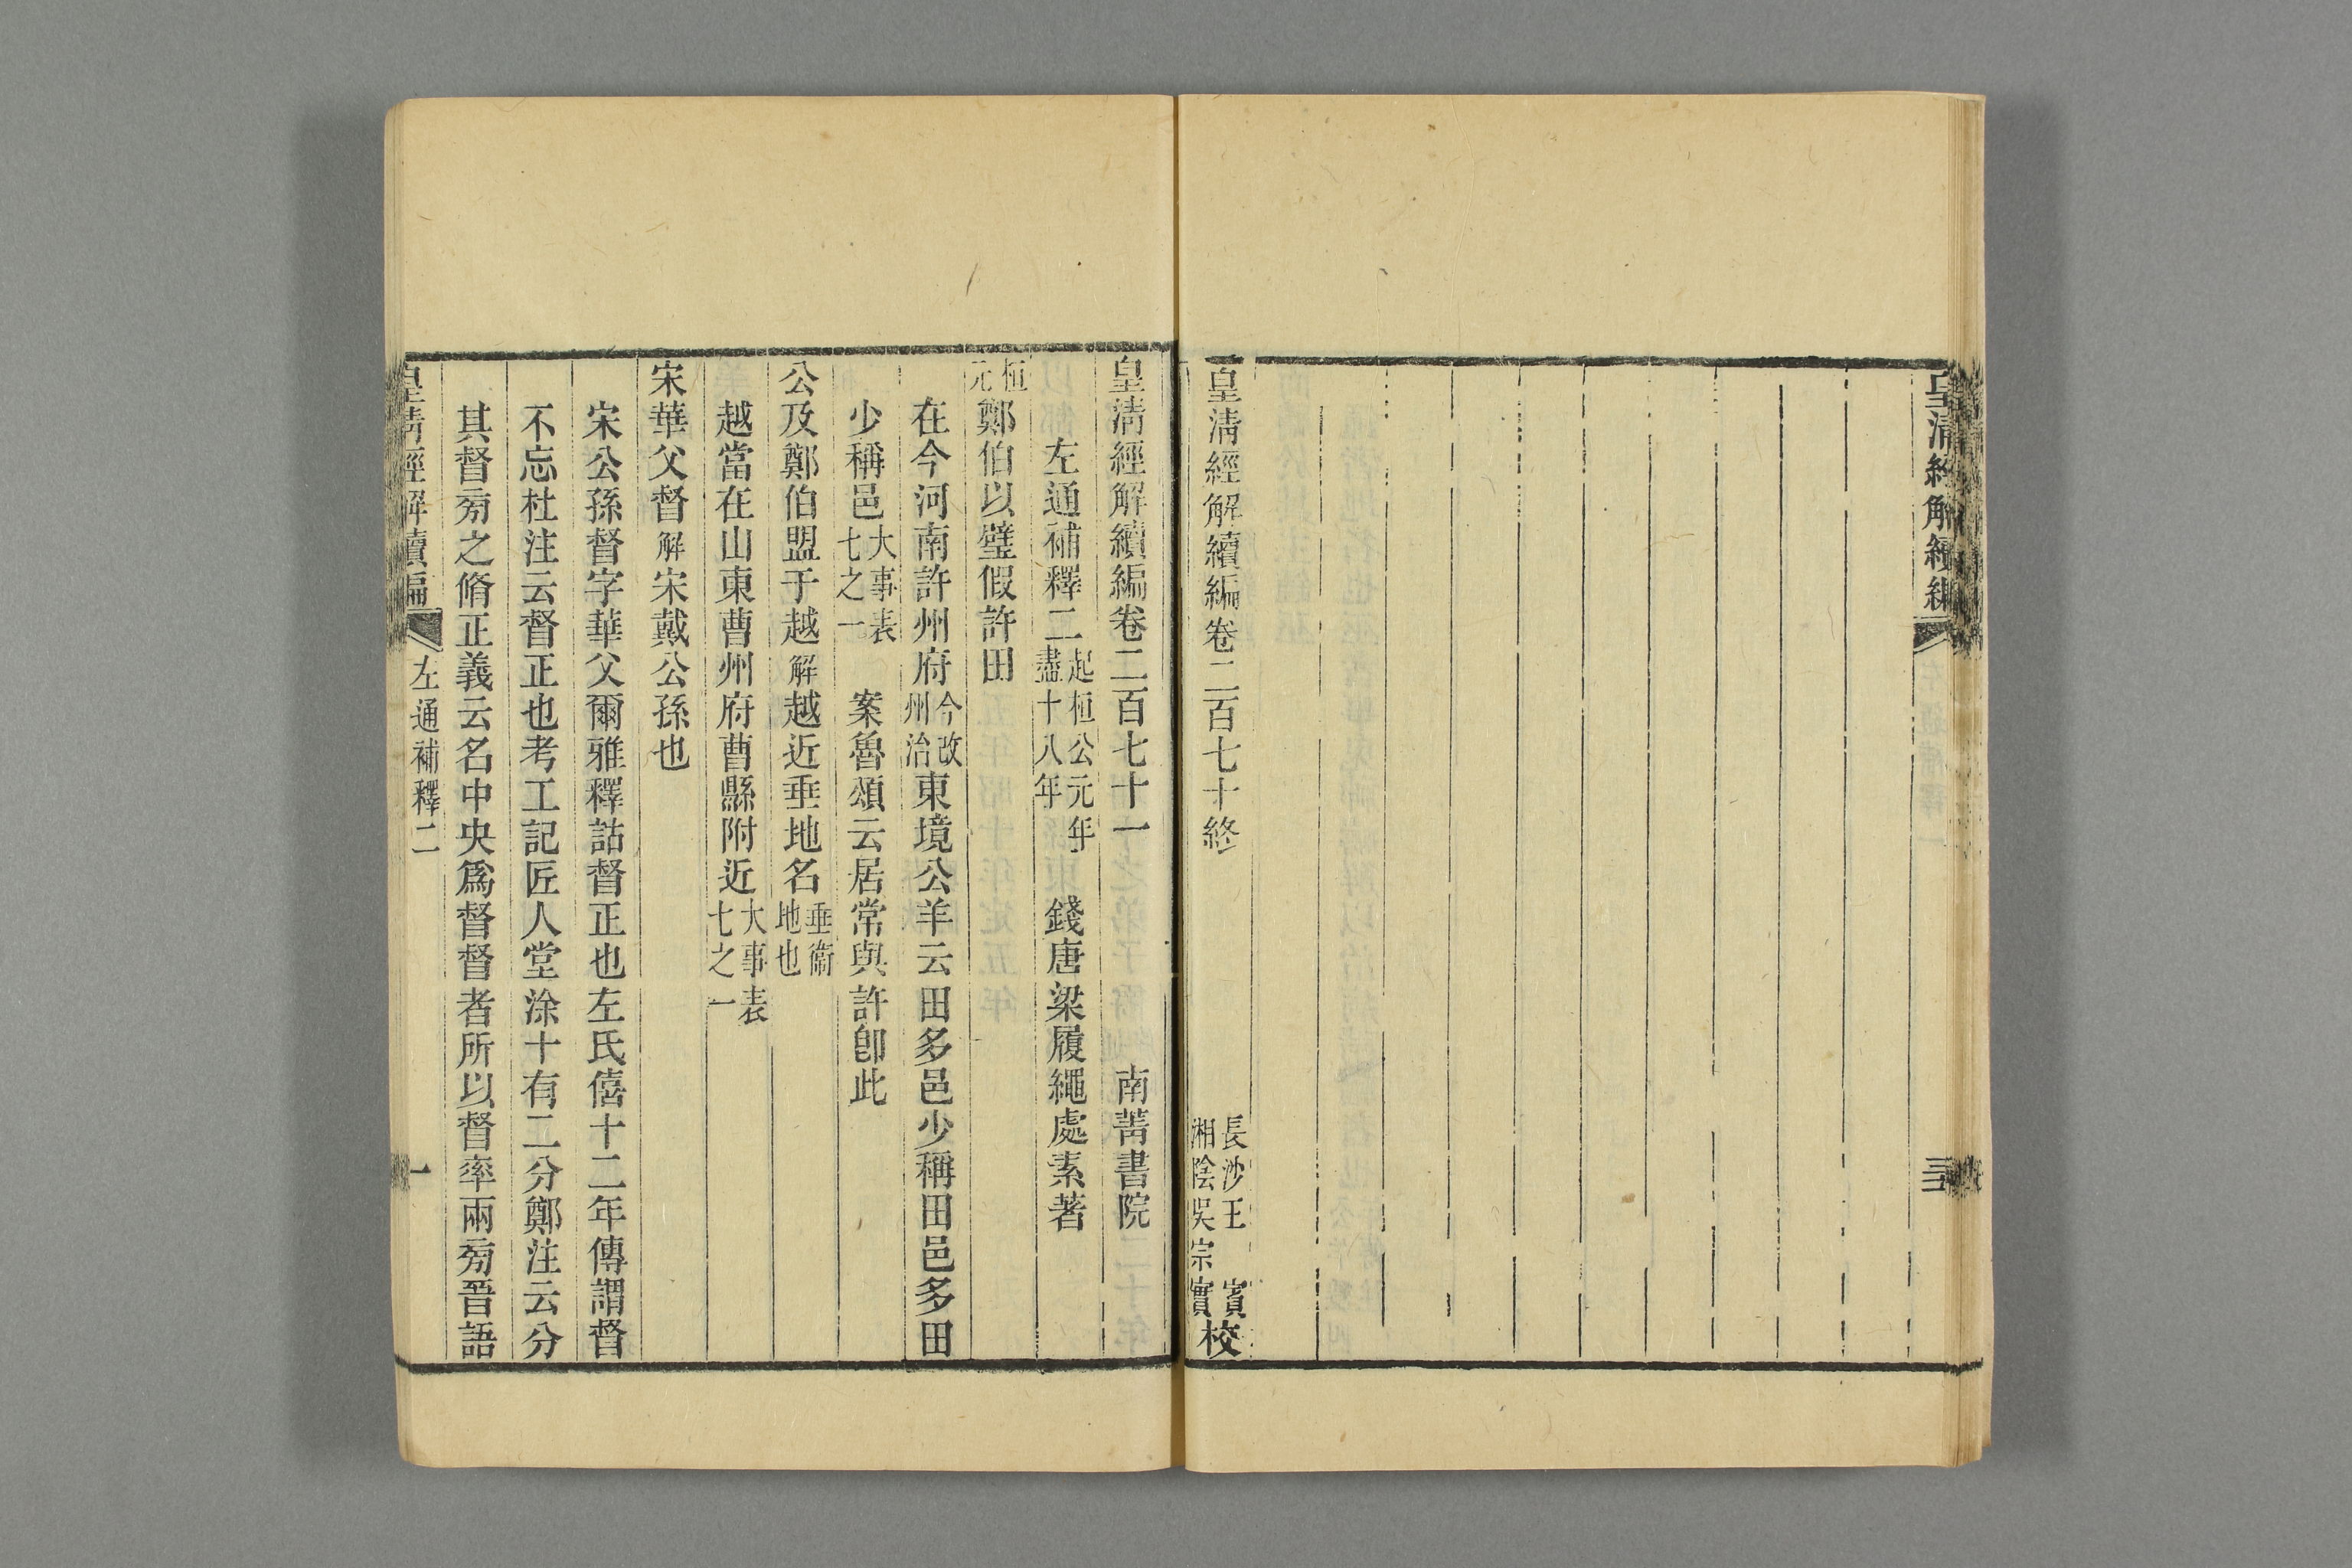 皇清經解續編
三
皇清經解續編卷二百七十終
長沙王 賓
湘陰吳宗實
校
皇清經解續編卷二百七十一 南菁書院
左通補釋二起桓公元年盡十八年 錢唐梁履繩處素著
桓元鄭伯以璧假許田
在今河南許州府今改州治東境公羊云田多邑少稱田邑多田
少稱邑大事表七之一 案魯頌云居常與許卽此
公及鄭伯盟于越解越近垂地名垂衞地也
越當在山東曹州府曹縣附近大事表七之一
宋華父督解宋戴公孫也
宋公孫督字華父爾雅釋詁督正也左氏僖十二年傳謂督
不忘杜注云督正也考工記匠人堂涂十有二分鄭注云分
其督旁之脩正義云名中央爲督督者所以督率兩旁晉語
皇清經解續編 左通補釋二 一